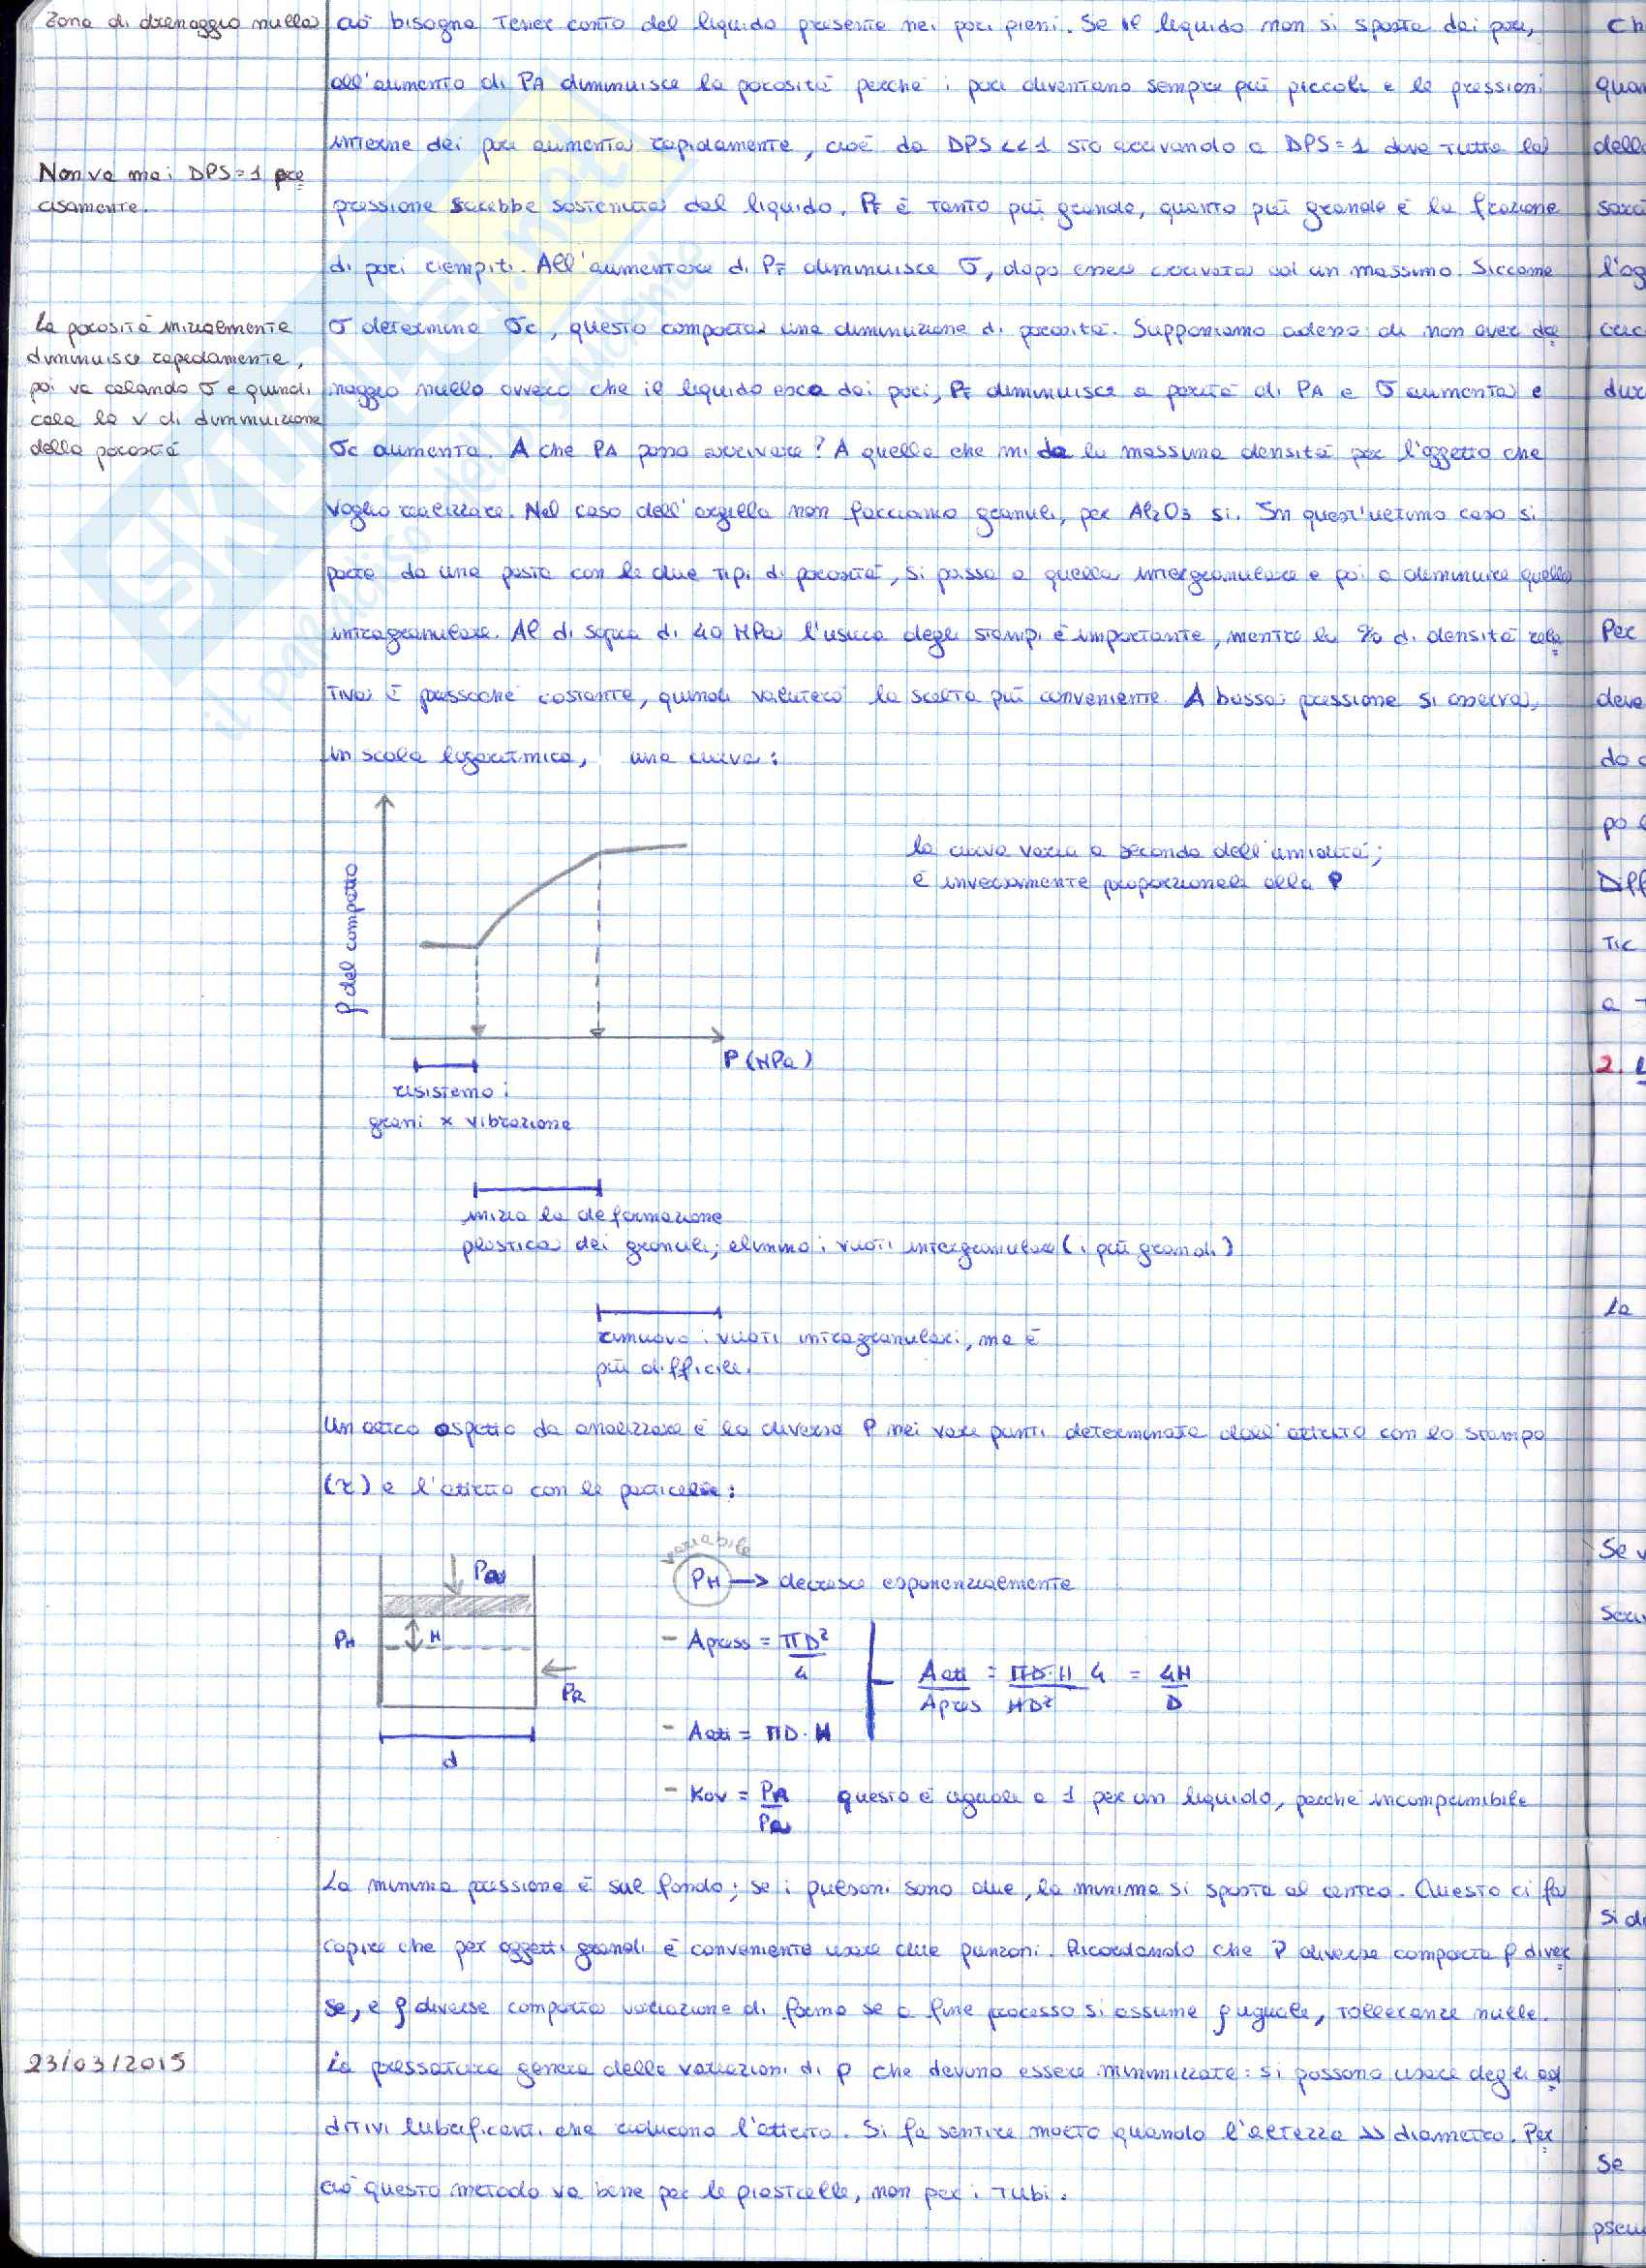 Zona di drenaggio nulla
ciò bisogna tener conto del liquido presente nei pori pieni. Se il liquido non si sposta dai pori,
all'aumento di PA diminuisce la porosità perché i pori diventano sempre più piccoli e la pressione
interna dei pori aumenta rapidamente, cioè da DPS << 1 sto arrivando a DPS = 1 dove tutta la
Non va mai DPS = 1 pre
cisamente.
pressione sarebbe sostenuta dal liquido. PF è tanto più grande, quanto più grande è la frazione
di pori riempiti. All'aumentare di PF diminuisce σ, dopo essere arrivata ad un massimo. Siccome
La porosità inizialmente
diminuisce rapidamente,
poi va calando σ e quindi
cala la v di diminuizione
della porosità
σ determina σc, questo comporta una diminuzione di porosità. Supponiamo adesso di non aver dre
naggio nullo ovvero che il liquido esca dai pori, PF diminuisce a parità di PA e σ aumenta e
σc aumenta. A che PA posso arrivare? A quella che mi da la massima densità per l'oggetto che
voglio realizzare. Nel caso dell'argilla non facciamo granuli, per Al2O3 si. In quest'ultimo caso si
parte da una pasta con le due tipi di porosità, si passa a quella intergranulare e poi a diminuire quella
intragranulare. Al di sopra di 40 MPa l'usura degli stampi è importante, mentre la % di densità rela
tiva è pressoché costante, quindi valuterò la scelta più conveniente. A bassa pressione si osserva,
in scala logaritmica, una curva:
ρ del compatto
la curva varia a seconda dell'umidità;
è inversamente proporzionale alla P
P (MPa)
risistemo i
grani x vibrazione
inizia la deformazione
plastica dei granuli; elimino i vuoti intergranulari (i più grandi)
rimuovo i vuoti intragranulari, ma è
più difficile.
Un altro aspetto da analizzare è la diversa P nei vari punti determinata dall'attrito con lo stampo
(τ) e l'attrito con le particelle:
variabile
Pa
PH
H
PR
d
PH → decresce esponenzialmente
- Apress = πD²/4
- Aatt = πD·H
Aatt/Apres = πD·H 4/πD² = 4H/D
- Kov = PR/Pa questo è uguale a 1 per un liquido, perché incomprimibile
La minima pressione è sul fondo; se i pulsoni sono due, la minima si sposta al centro. Questo ci fa
capire che per oggetti grandi è conveniente usare due punzoni. Ricordando che P diverse comporta ρ diver
se, e ρ diverse comporta variazione di forma se a fine processo si assume ρ uguale, tolleranze nulle.
23/03/2015
La pressatura genera delle variazioni di ρ che devono essere minimizzate: si possono usare degli ad
ditivi lubrificanti che riducono l'attrito. Si fa sentire molto quando l'altezza >> diametro. Per
ciò questo metodo va bene per le piastrelle, non per i tubi.
quan
dell
sarà
l'og
Per
deve
Diff
2.
la
Se
pseu